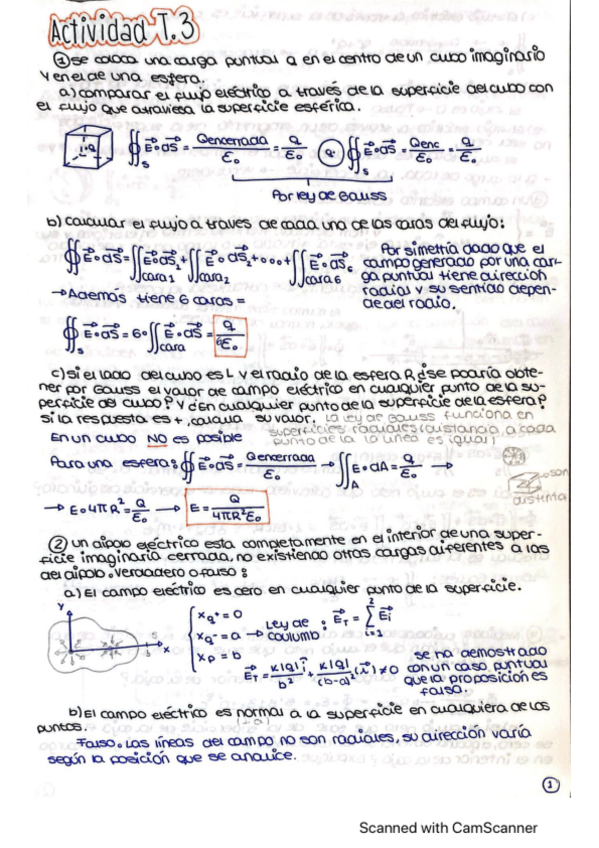 Actividad T.3
① se coloca una carga puntual Q en el centro de un cubo imaginario
y en el de una esfera.
a) comparar el flujo eléctrico a través de la superficie del cubo con
el flujo que atraviesa la superficie esférica.
∯s E·dS = Qencerrada/ε₀ = Q/ε₀   ∯s E·dS = Qenc/ε₀ = Q/ε₀
Por ley de Gauss
b) calcular el flujo a través de cada una de las caras del flujo:
∯s E·dS = ∬cara1 E·dS₂ + ∬cara2 E·dS₂ + ... + ∬cara6 E·dS₆
Por simetría dado que el
campo generado por una car-
ga puntual tiene dirección
radial y su sentido depen-
de del radio.
→ Además tiene 6 caras =
∯s E·dS = 6·∬cara E·dS = Q/6ε₀
c) si el lado del cubo es L y el radio de la esfera R, ¿se podría obte-
ner por Gauss el valor de campo eléctrico en cualquier punto de la su-
perficie del cubo? ¿Y en cualquier punto de la superficie de la esfera?
si la respuesta es +, calcula su valor. La ley de Gauss funciona en
superficies radiales (distancia a cada
punto de la línea es igual)
En un cubo NO es posible
Para una esfera: ∯s E·dS = Qencerrada/ε₀ → ∬A E·dA = Q/ε₀ →
son
distinta
→ E·4πR² = Q/ε₀ → E = Q/4πR²ε₀
② un dipolo eléctrico esta completamente en el interior de una super-
ficie imaginaria cerrada, no existiendo otras cargas diferentes a las
del dipolo. Verdadero o falso:
a) El campo electrico es cero en cualquier punto de la superficie.
y
x
b
a
s
xq⁺ = 0
xq⁻ = a → Ley de coulomb : ET = Σ²i=1 Ei
xp = b
ET = K|q|/b² i + K|q|/(b-a)² (-i) ≠ 0
se ha demostrado
con un caso puntual
que la proposición es
falsa.
b) El campo eléctrico es normal a la superficie en cualquiera de los
puntos.
Falso. Las líneas del campo no son radiales, su dirección varía
según la posición que se analice.
①
Scanned with CamScanner